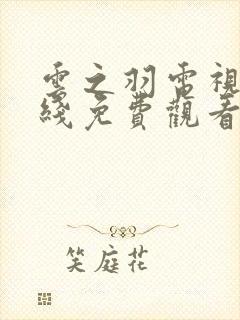 雲之羽電視
綫免費觀看
笑庭花